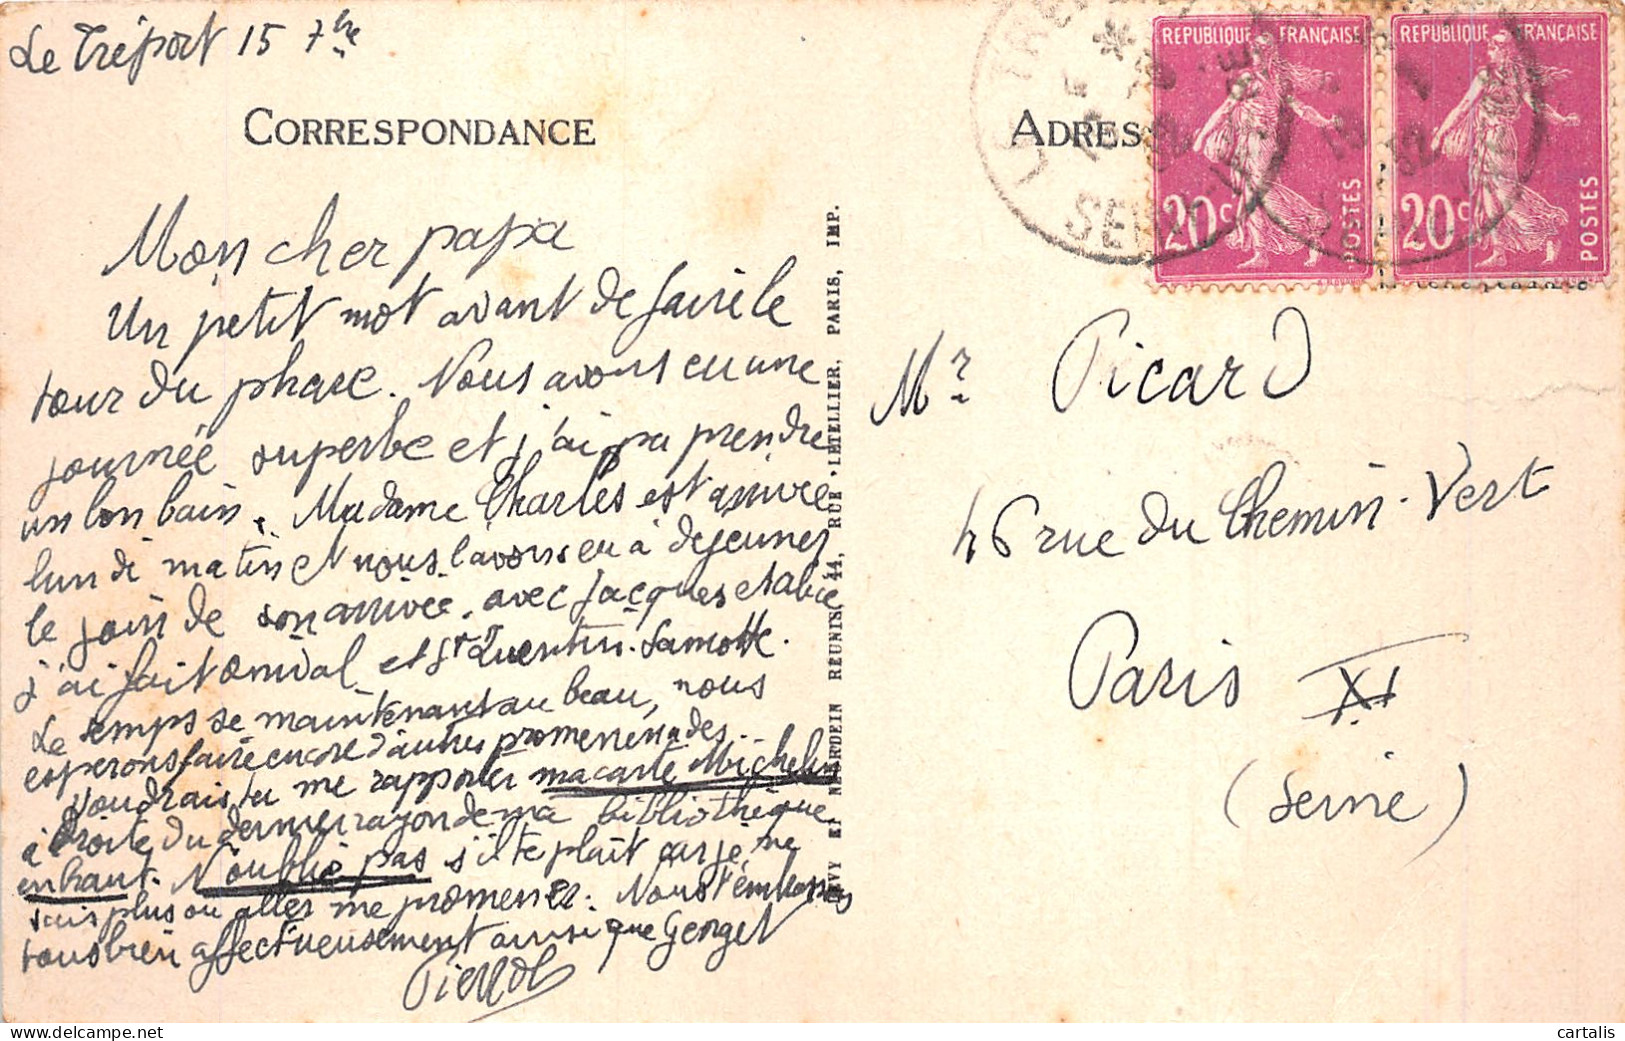 Le Tréport 15 7bre
CORRESPONDANCE
Mon cher papa
Un petit mot avant de faire le
tour du phare. Nous avons eu une
journée superbe et j'ai pu prendre
un bon bain. Madame Charles est arrivée
lundi matin et nous l'avons eu à dejeuner
le join de son arrivée. avec Jacques et
j'ai fait et St Quentin-Lamotte.
Le temps se maintenant au beau, nous
esperons faire encore d'autres promenenades.
Voudrais tu me rapporter ma carte Michelin
à droite du dernier rayon de ma bibliothèque
en haut. N'oublie pas s'il te plait car je ne
sais plus ou aller me promener. Nous t'embrassons
tous bien affectueusement ainsi que Georget
LEVY ET NEURDEIN REUNIS, 44, RUE LETELLIER, PARIS, IMP.
ADRES
REPUBLIQUE FRANÇAISE
20c
POSTES
REPUBLIQUE FRANÇAISE
20c
POSTES
Mr Picard
46 rue du Chemin-Vert
Paris XI
(Seine)
cartalis